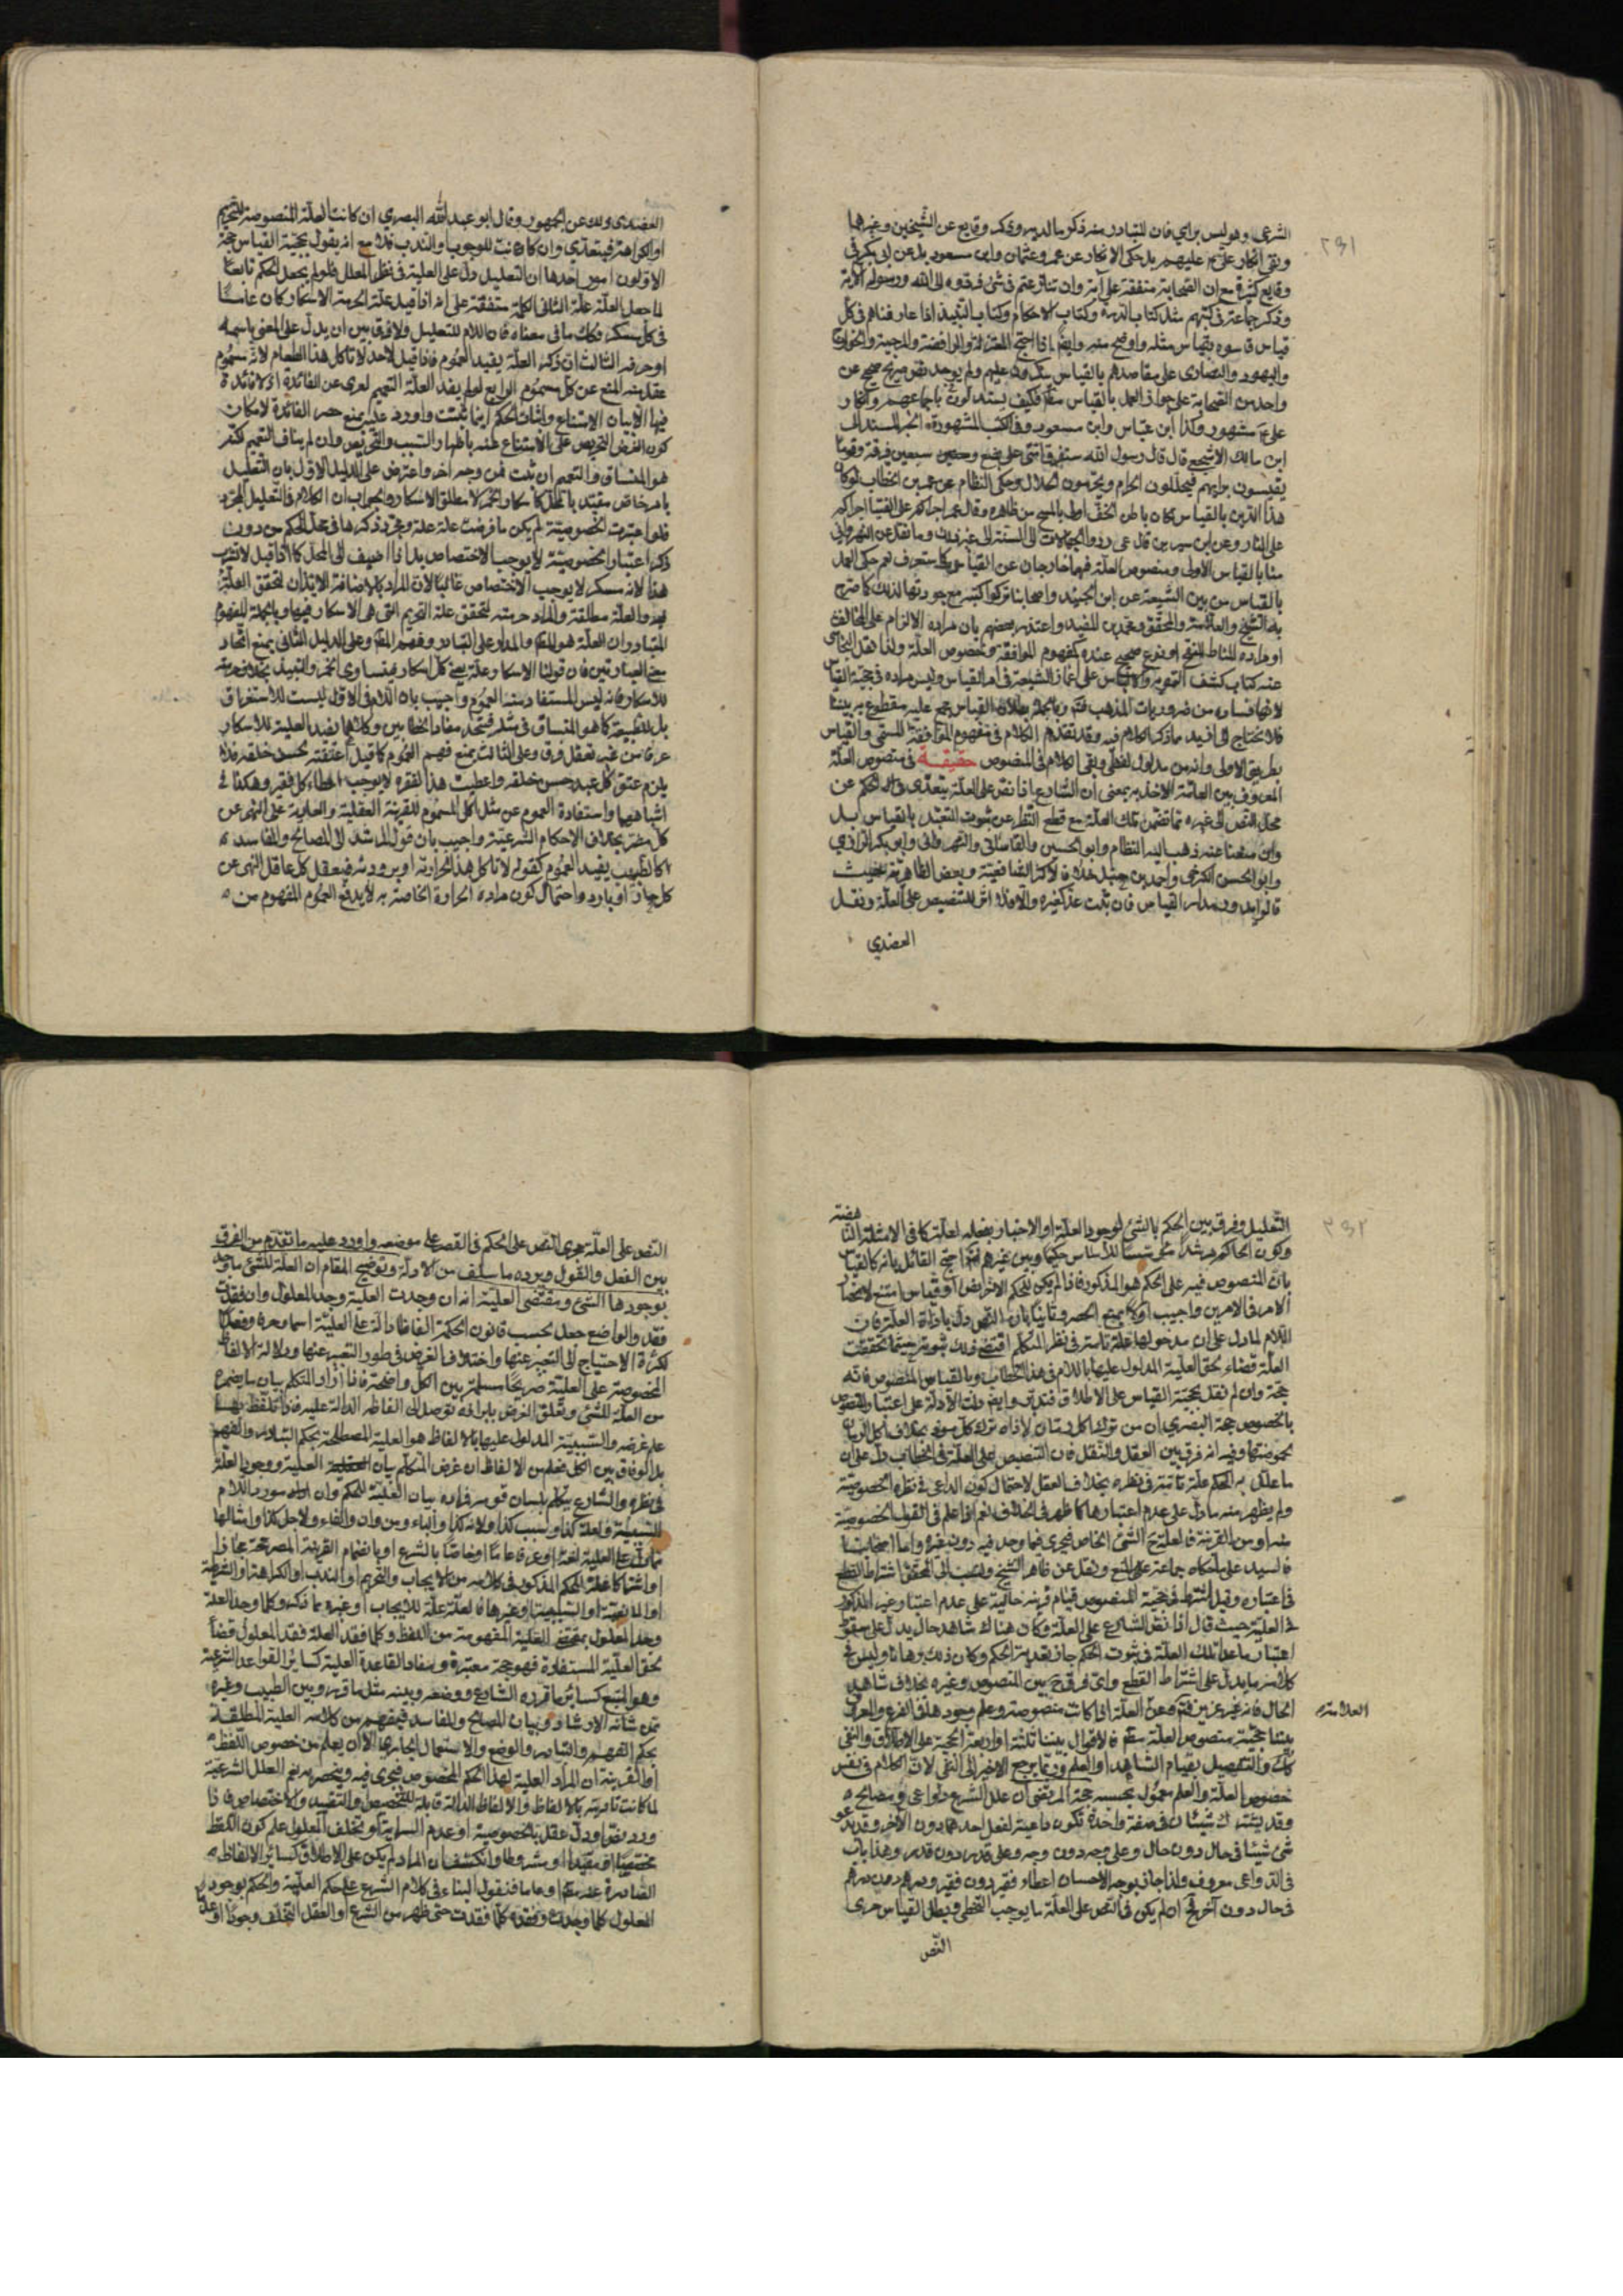 الشرعي وهو ليس براي فان المتبادر منه ذكر ما لديه وقايع عن الشيخين وغيرهما
ونفى انكار علي ع عليهم بل حكى الانكار عن عمر وعثمان وابن مسعود بل عن ابي بكر في
وقايع كثيرة مع ان الصحابة متفقة على آية وان تنازعتم في شئ فردوه الى الله ورسوله الآية
وذكر جماعة في كتبهم مثل كتاب الدرة وكتاب الاحكام وكتاب التنبيه اذا عارفناهم في كل
قياس قاسوه بقياس مثله واوضح منه وايضا اذا احتج المعتزلة والرافضة والمرجئة والخوارج
واليهود والنصارى على مقاصدهم بالقياس ينكرون عليهم ولم يوجد نص صريح صحيح عن
واحد من الصحابة على جواز العمل بالقياس فكيف يستدلون باجماعهم وانكار
علي ع مشهور وكذا ابن عباس وابن مسعود وفي الكتب المشهورة الخبر المسند الى
ابن مالك الاشجعي قال قال رسول الله ستفرق امتي على بضع وسبعين فرقة وقوما
يقيسون برايهم فيحللون الحرام ويحرمون الحلال وحكى النظام عن عمر بن الخطاب لو كان
هذا الدين بالقياس لكان باطن الخف اولى بالمسح من ظاهره وقال عمر اجراكم على الفتيا اجراكم
على النار وعن ابن سيرين قال عمر ردوا الجهالات الى السنة الى غير ذلك وما نقل عن
منا بالقياس الاولى ومنصوص العلة فهما خارجان عن القياس كما ستعرف نعم حكى العمل
بالقياس من بين الشيعة عن ابن الجنيد واصحابنا تركوا كتبه مع جودتها لذلك كما صرح
به الشيخ والعلامة والمحقق ومحمد بن المفيد واعتذر بعضهم بان مراده الالزام على المخالف
او مراده المناط المنقح او نوع صحيح عنده كمفهوم الموافقة ومنصوص العلة ولذا نقل النجاشي
عنه كتاب كشف التمويه والالباس على اغمار الشيعة في امر القياس وليس مراده في حجية القياس
لانها فساده من ضروريات المذهب فتم وبالجملة بطلان القياس مجمع عليه مقطوع به بيننا
فلا نحتاج الى ازيد مما ذكر الكلام فيه وقد تقدم الكلام في مفهوم الموافقة المسمى والقياس
بطريق الاولى وانه من مدلول لفظي وبقى الكلام في المنصوص حقيقة في منصوص العلة
المعروف بين العامة الاخذ به بمعنى ان الشارع اذا نص على العلة يتعدى ذلك الحكم عن
محل النص الى غيره مما تضمن تلك العلة مع قطع النظر عن ثبوت التعبد بالقياس بل
وان منعنا عنه ذهب اليه النظام وابو الحسين والقاساني والنهرواني وابو بكر الرازي
وابو الحسن الكرخي واحمد بن حنبل خلافا لاكثر الشافعية وبعض الظاهرية حيث
قالوا يدور مدار القياس فان ثبت عم غيره والا فلا اثر للتنصيص على العلة ونقل
العضدي
العضدي ذلك عن الجمهور وقال ابو عبد الله البصري ان كانت العلة المنصوصة للتحريم
او الكراهة فيتعدى وان كانت للوجوب او الندب فلا مع انه يقول بحجية القياس حجة
الاولون امور احدها ان التعليل دل على العلية في نظر المعلل فلو لم يجعل الحكم تابعا
لما جعل العلة علة الثاني الكلمة متفقة على انه اذا قيل علة الحرمة الاسكار كان عاما
في كل مسكر فكذا ما في معناه فان اللام للتعليل ولا فرق بين ان يدل على المعنى باسمه
او حرفه الثالث ان ذكر العلة يفيد العموم فاذا قيل لاحد لا تاكل هذا الطعام لانه مسموم
عقل منه المنع عن كل مسموم الرابع لو لم يفد العلة التعميم لعرى عن الفائدة اذ لا فائدة
فيها الا بيان الامتناع واثبات الحكم اينما ثبتت واورد عليه بمنع حصر الفائدة لامكان
كون الغرض التحريص على الامتناع عنه باظهار السبب والتحريص وان لم يناف التعميم لكنه
هو المنساق والتعميم ان ثبت فمن وجه آخر واعترض على الدليل الاول بان التعليل
بامر خاص مقيد بالمحل كاسكار الخمر لا مطلق الاسكار والجواب ان الكلام في التعليل المجرد
فلو اعتبرت الخصوصية لم يكن ما فرضت علة علة ومجرد ذكرها في محل الحكم من دون
ذكر اعتبار الخصوصية لا يوجب الاختصاص بل اذا اضيف الى المحل كما اذا قيل لا تشرب
هذا لانه مسكر لا يوجب الاختصاص غالبا لان المراد بالاضافة الايذان لتحقق العلة
فيه والعلة مطلقة والمراد حرمته لتحقق علة التحريم التي هي الاسكار فيها وبالجملة المفهوم
المتبادر ان العلة هو المطلق والمدار على التبادر وفهم المعنى وعلى الدليل الثاني بمنع اتحاد
معنى العبارتين فان قولنا الاسكار علة يعم كل اسكار فيتساوى الخمر والنبيذ بخلاف حرمته
للاسكار فانه ليس المستفاد منه العموم واجيب بان اللام في الاول ليست للاستغراق
بل للطبيعة كما هو المنساق في مثله فيتحد مفاد الخطابين وكلاهما يفيد العلية للاسكار
عرفا من غير تعقل فرق وعلى الثالث بمنع فهم العموم كما قيل اعتقته لحسن خلقه فلا
يلزم عتق كل عبد حسن خلقه واعطيت هذا لفقره لا يوجب اعطاء كل فقير وهكذا في
اشباههما واستفادة العموم عن مثل اكل المسموم للقرينة العقلية والعادية على النهي عن
كل مضر بخلاف الاحكام الشرعية واجيب بان قول المرشد الى المصالح والمفاسد
كالطبيب يفيد العموم كقوله لا تاكل هذا لحرارته او برودته فيعقل كل عاقل النهي عن
كل حار او بارد واحتمال كون مراده الحرارة الخاصة به لا يدفع العموم المفهوم من
التعليل وفرق بين الحكم بالشئ لوجود العلة او الاخبار بفعله لعلة كما في الامثلة
بان المنصوص فيه على الحكم هو المذكور فاذا لم يكن للحكم
الامر في الامرين واجيب اولا بمنع الحصر وثانيا بان النص دل باداة العلة فان
اللام لما دل على ان مدخولها علة تامة في نظر المتكلم اقتضى ذلك ثبوته حيثما تحققت
العلة قضاء لحق العلية المدلول عليها باللام في هذا الخطاب وبالقياس المنصوص فانه
حجة وان لم نقل بحجية القياس على الاطلاق فتدبر وايضا دلت الادلة على اعتبار المنصوص
بالخصوص حجة البصري ان من ترك اكل رمان لاذاه ترك كل موذ بخلاف اكل الرمان
لحموضتها وفيه انه فرق بين العقل والنقل فان التنصيص على العلة في الخطاب دل على ان
ما علل به الحكم علة تامة في نظره بخلاف العقل لاحتمال كون الداعي في نظره الخصوصية
ولم يظهر منه ما دل على عدم اعتبارها كما ظهر في الخلاف نعم اذا علم في القول الخصوصية
منه او من القرينة فالعلة ح الشئ الخاص فيجرى فيما وجد فيه دون غيره واما اصحابنا
فالسيد على ما حكاه جماعة على المنع ونقل عن ظاهر الشيخ ونسب الى المحقق اشتراط القطع
في اعتباره وقيل اشترط في حجية المنصوص قيام قرينة حالية على عدم اعتبار غير المذكور
في العلية حيث قال اذا نص الشارع على العلة وكان هناك شاهد حال يدل على سقوط
اعتبار ما عدا تلك العلة في ثبوت الحكم جاز تعدية الحكم وكان ذلك برهانا وليس في
كلامه ما يدل على اشتراط القطع واي فرق ح بين المنصوص وغيره بخلاف شاهد
الحال فانه غير عزيز فتم وعن العلة اذا كانت منصوصة وعلم وجودها في الفرع والمعروف
العلامة
بيننا حجية منصوص العلة فالاقوال بيننا ثلثة او اربعة الحجية على الاطلاق والنفي
كذلك والتفصيل بقيام الشاهد او العلم وربما يرجع الاخير الى النفي لان الكلام في نفس
خصوص العلة والعلم معمول بحسبه حجة المرتضى ان علل الشرع دواعي ومصالح
وقد يشترك شيئان في صفة واحدة تكون داعية لفعل احدهما دون الآخر وقد يدعو
شئ شيئا في حال دون حال وعلى وجه دون وجه وعلى قدر دون قدر وهذا باب
في الدواعي معروف ولذا جاز بوجه الاحسان اعطاء فقير دون فقير ودرهم دون درهم
في حال دون آخر فح اصلا لم يكن في النص على العلة ما يوجب التخطي ويبطل القياس جرى
النص
النص على العلة مجرى النص على الحكم في القصر على موضعه واورد عليه ما تقدم من الفرق
بين الفعل والقول ويرده ما سلف من الادلة وتوضيح المقام ان العلة للشئ ما وجد
بوجودها الشئ ومقتضى العلية انه ان وجدت العلية وجد المعلول وان فقدت
فقد والواضع جعل بحسب قانون الحكمة الفاظا دالة على العلية اسما وحرفا وفعلا
لكثرة الاحتياج الى التعبير عنها واختلاف الغرض في طور التعبير عنها ودلالة الالفاظ
المخصوصة على العلية صريحا مسلمة بين الكل واضحة فاذا اراد المتكلم بيان ما يضمره
من العلة للشئ وتعلق الغرض بابرازه توصل الى الفاظه الدالة عليه فاذا تلفظ بها
علم غرضه والسببية المدلول عليها بالالفاظ هو العلية المصطلحة بحكم التبادر والفهم
بل الوفاق بين الكل فعلم من الالفاظ ان غرض المتكلم بيان العلية ووجود العلة
في نظره والشارع يتكلم بلسان قومه فمراده بيان العلية للحكم وان
للسببية ولعلة كذا وبسبب كذا ولانه كذا والباء ومن وان والفاء ولاجل كذا وامثالها
مما دل على العلية لغة او عرفا عاما او خاصا بالشرع او بانضمام القرينة
وجد المعلول بمقتضى العلية المفهومة من اللفظ وكلما فقد العلة فقد المعلول قضاء
لحق العلية المستفادة فهو حجة معتبرة ومفاد القاعدة العلية كسائر القواعد الشرعية
وهو المتبع كسائر ما قرره الشارع ووضعه وبينه مثل ما قرره وبين الطبيب وغيره
ممن شانه الارشاد وبيان المصالح والمفاسد فيفهم من كلامه العلية المطلقة
بحكم الفهم والتبادر والوضع والاستعمال الا ان يعلم من خصوص اللفظ
او القرينة ان المراد العلية لهذا الحكم المخصوص فيجرى فيه وينحصر به نعم العلل الشرعية
لما كانت تامة بالالفاظ والالفاظ الدالة قابلة للتخصيص والتقييد والاختصاص فاذا
ورد نص او دل عقل بالخصوصية او عدم السراية او تخلف المعلول علم كون اللفظ
مختصا او مقيدا او مشروطا وانكشف ان المراد لم يكن على الاطلاق كسائر الالفاظ
الصادرة فنقول البناء في كلام الشرع على حكم العلية والحكم بوجود
المعلول كلما وجدت وفقده كلما فقدت حتى ظهر من الشرع او العقل التخلف وجودا او عدما